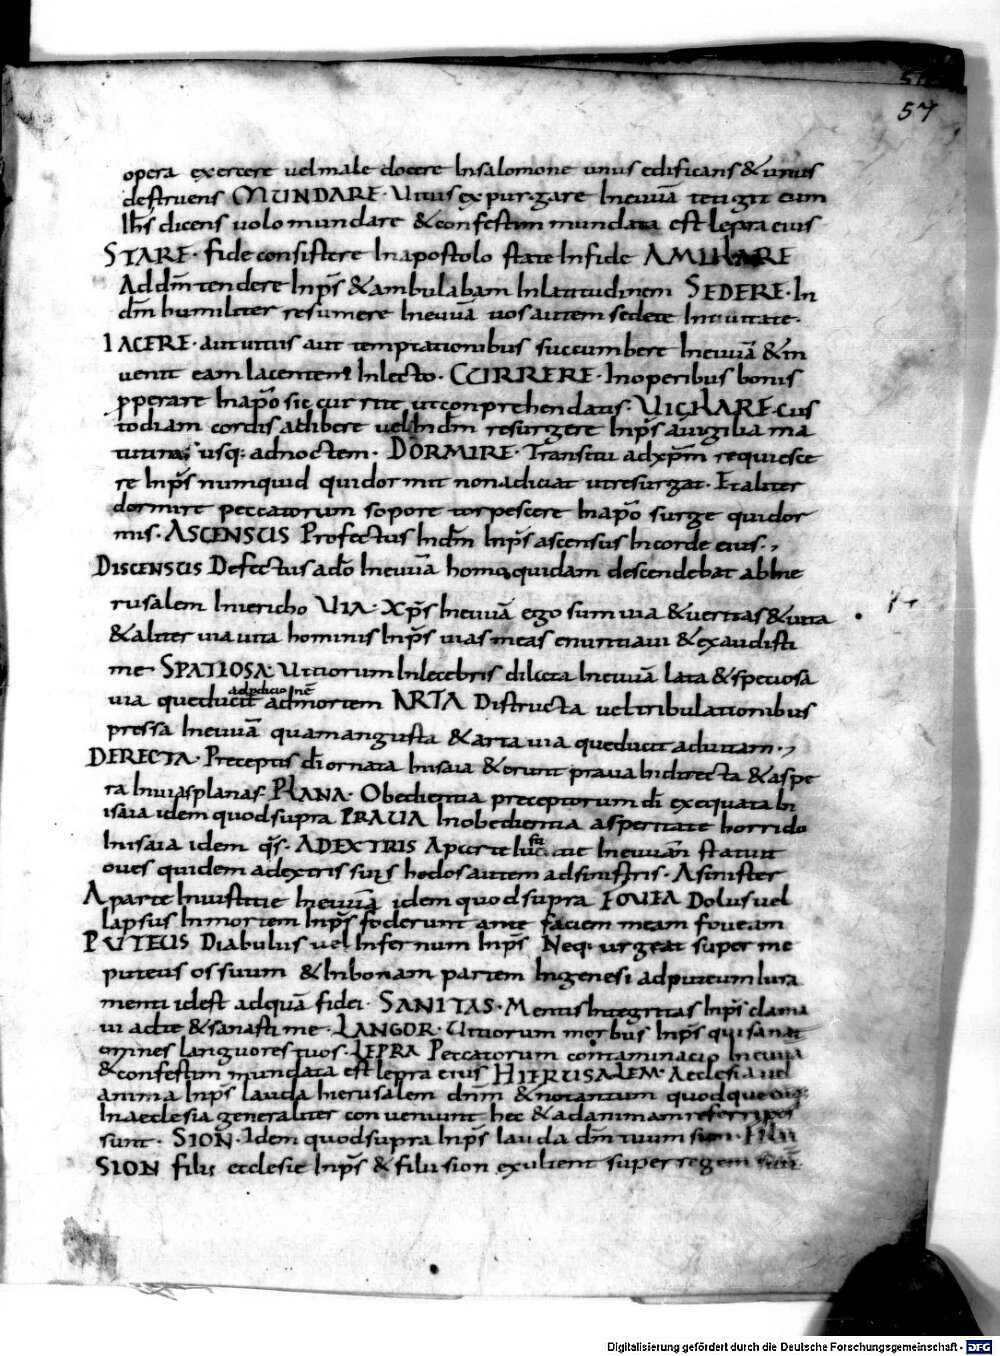 57
opera exercere vel male docere In salomone unus edificans & unus
destruens MUNDARE · Uitus expurgare In euuā tetigit eum
Ihs̄ dicens uolo mundare & confestim mundata est lepra eius
STARE · fide consistere In apostolo state In fide
Ad dm̄ tendere In ps̄ & ambulabam In latitudinem SEDERE · In
dm̄ humiliter resumere In euuā uos autem sedete In ciuitate ·
IACERE · aut uitiis aut temptationibus succumbere In euuā & in
uenit eam Iacentem In lecto · CURRERE · In operibus bonis
ꝓperare In apo sic currite ut conprehendatis · UIGILARE · cus
todiam cordis adhibere vel In dm̄ resurgere In ps̄ a uigilia ma
tutina usq: ad noctem · DORMIRE · Transitu ad xp̄m requiesce
re In ps̄ numquid qui dormit non adiciat ut resurgat · Et aliter
dormire peccatorum sopore torpescere In apo surge qui dor
mis · ASCENSUS Profectus In dm̄ In ps̄ ascensus In corde eius ·,
DISCENSUS Defectus a do In euuā homo quidam descendebat ab hie
rusalem In iericho UIA · Xps̄ In euuā ego sum uia & ueritas & uita
& aliter uia uita hominis In ps̄ uias meas enuntiaui & exaudisti
me · SPATIOSA · Uitiorum Inlecebris dilecta In euuā lata & speciosa
uia que ducit ad mortem ARTA Districta vel tribulationibus
pressa In euuā quam angusta & arta uia que ducit ad uitam ·,
DERECTA · Preceptis dī ornata In isaia & erunt praua In directa & aspe
ra In uias planas · PLANA · Obedientia preceptorum dī exequata In
isaia idem quod supra PRAUA Inobedientia asperitate horrido
In isaia idem qs̄ · ADEXTRIS A parte In euuān statuit
oues quidem a dextris suis hedos autem ad sinistris · A sinister
A parte Iniustitie In euuā idem quod supra FOUEA Dolus vel
lapsus In mortem In ps̄ foderunt ante faciem meam foueam
PUTEUS Diabulus vel Infernum In ps̄ Neq: urgeat super me
puteus os suum & In bonam partem In genesi ad puteum Iura
menti idest ad quā fidei · SANITAS · Mentis Integritas In ps̄ clama
ui ad te & sanasti me · LANGOR · Uitiorum morbus In ps̄ qui sanat
omnes languores tuos · LEPRA Peccatorum contaminacio In euua
& confestim mundata est lepra eius HIERUSALEM · Aeclesia vel
anima In ps̄ lauda hierusalem dn̄m & notantum quod que
In aeclesia generaliter conueniunt hec & ad animam referri pos
sunt · SION · Idem quod supra In ps̄ lauda dm̄ tuum sion · FILII
SION filii ecclesie In ps̄ & filii sion exultent super regem suū
Digitalisierung gefördert durch die Deutsche Forschungsgemeinschaft - DFG